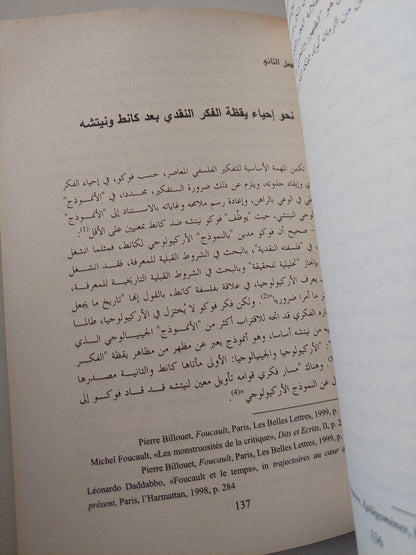 الثاني
نحو إحياء يقظة الفكر النقدي بعد كانط ونيتشه
تكمن المهمة الأساسية للتفكير الفلسفي المعاصر، حسب فوكو، في إحياء الفكر
وإيقاد جذوته، ويلزم عن ذلك ضرورة التفكير، مجددا، في "الأنموذج"
في الوعي بالراهن، وإعادة رسم ملامحه وغاياته بالاستناد إلى "الأنموذج"
النيتشي، حيث "يوظف" فوكو نيتشه ضد كانط بمعنيين على الأقل(1):
صحيح أن فوكو مدين "بالنموذج الأركيولوجي لكانط، فمثلما انشغل
"فلسفته النقدية"، بالبحث في الشروط القبلية للمعرفة، فقد انشغل
بإنجاز "تحليلية للحقيقة" وبالبحث في الشروط القبلية التاريخية للمعرفة،
يعرف الأركيولوجيا، في علاقة بفلسفة كانط، بالقول إنها "تاريخ ما يجعل
ما أمرا ضروريا"(2). ولكن فكر فوكو لا يُختزل في الأركيولوجيا، طالما
الفكري قد اتجه للاقتراب أكثر من "الأنموذج" الجينيالوجي الذي
من نيتشه أساسا، وهو أنموذج يعبر عن مظهر من مظاهر يقظة "الفكر
"الأركيولوجيا والجينيالوجيا: الأولى مأتاها كانط والثانية مصدرها
وهناك "مسار فكري قوامه تأويل معين لنيتشه قد قاد فوكو إلى
عن النموذج الأركيولوجي"(4).
Pierre Billouet, Foucault, Paris, Les Belles Lettres, 1999, p.
Michel Foucault, «Les monstruosités de la critique», Dits et Ecrits, II, p. 2
Pierre Billouet, Foucault, Paris, Les Belles Lettres, 1999, p.
Léonardo Daddabbo, «Foucault et le temps», in trajectoires au cœur
présent, Paris, l'Harmattan, 1998, p. 284
137
136